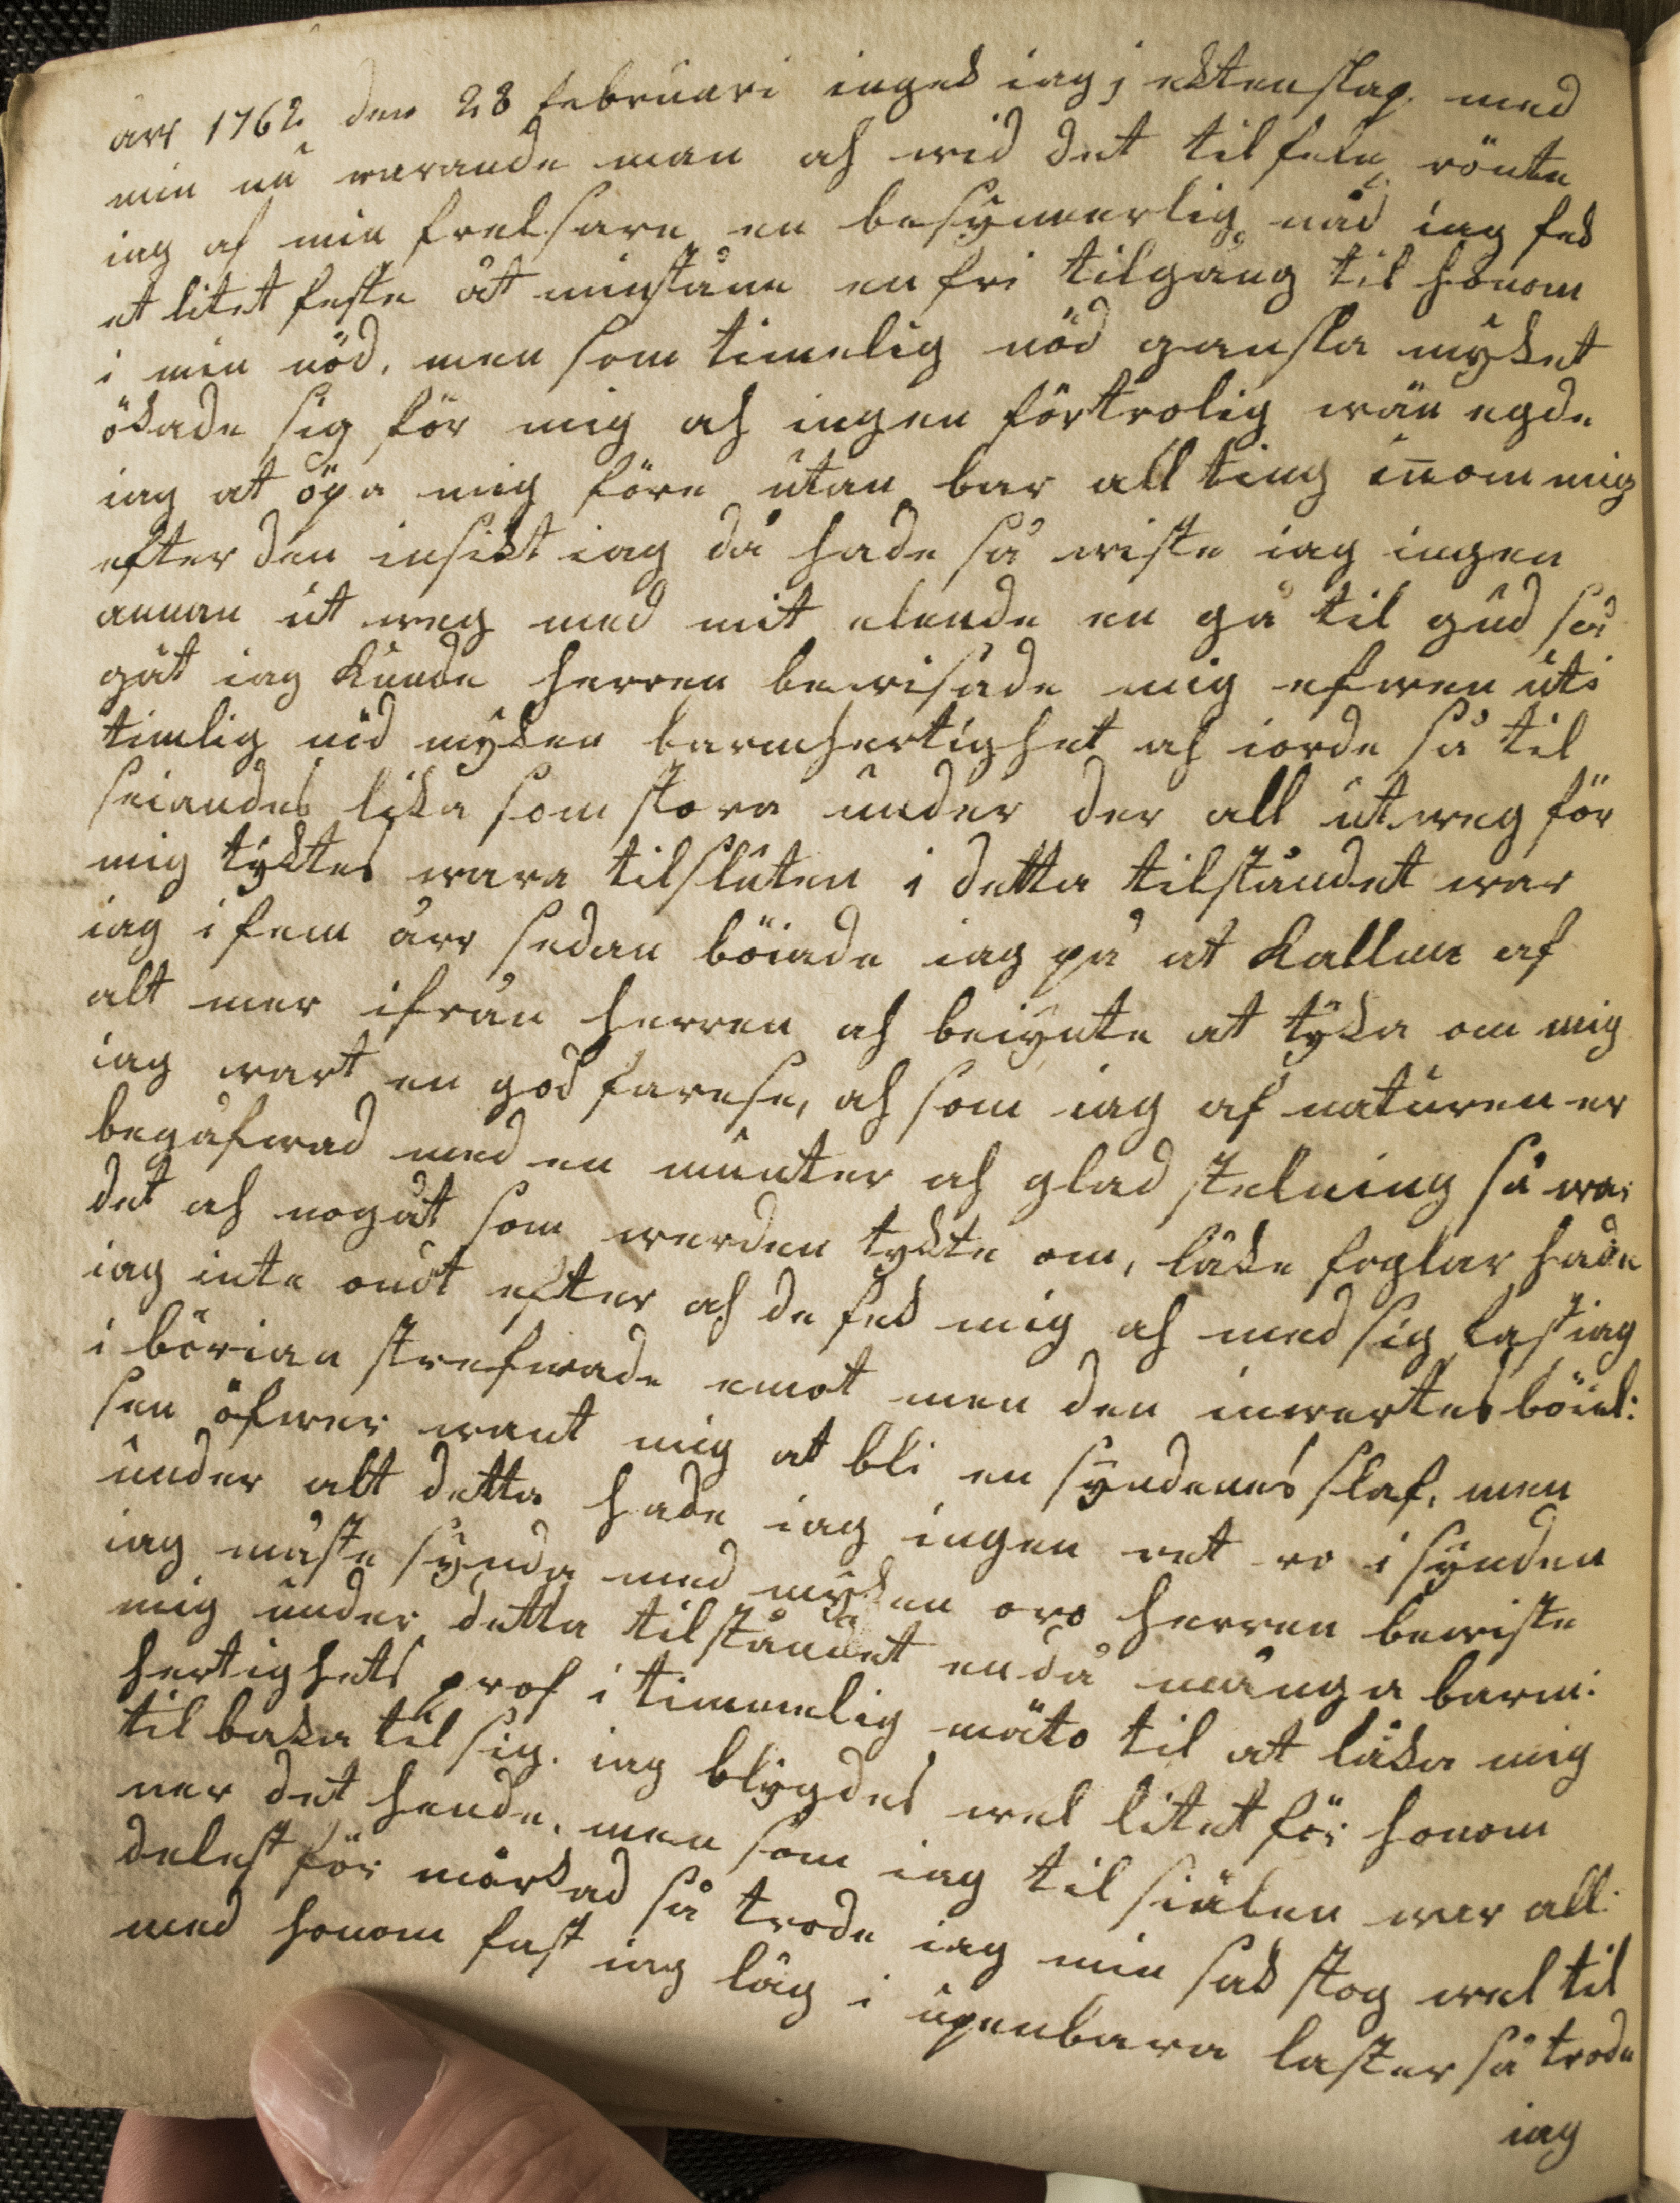 årr 1762 den 28 februari ingek iag j ektenskap med
min nu warande man ah wid det tilfele rönte
iag af min frelsare en besynnerlig nåd iag fek
et litet feste åt minstone en fri tilgång til honom
i min nöd, men som timelig nöd ganska myket
ökade sig för mig ah ingen förtrolig wän egde
iag at öpa mig före utan bar all ting inom mig
efter den insikt iag då hade så wiste iag ingen
annan ut weg med mit elende en gå til gud så
gåt iag kunde herren bewisade mig efwen uti
timlig nöd myken barmhertighet ah iorde så til
seiandes lika som stora under der all utweg för
mig tyktes wara tilsluten i detta tilståndet war
iag i fem årr sedan böiade iag på at kallna af
alt mer ifrån herren ah beiynte at tyka om mig
iag wart en god farese, ah som iag af naturen er
begåfwad med en munter ah glad stelning så war
det ah nogåt som werden tykte om, låke foglar hade
iag inte ondt efter ah de fek mig ah med sig fast iag
i börian strefwade emot men den inwertes böiel:
sen öfwer want mig at bli en syndenes slaf, men
under alt detta hade iag ingen ret ro i synden
iag måste synda med myken oro herren bewiste
mig under detta tilståndet endå många barm:
hertighets prof i timmelig måto til at låka mig
til baka til sig. iag blygdes wel litet för honom
ner det hende, men som iag til siälen war all:
delest för mörkad så trode iag min sak stog wel til
med honom fast iag låg i upenbara laster så trode
iag